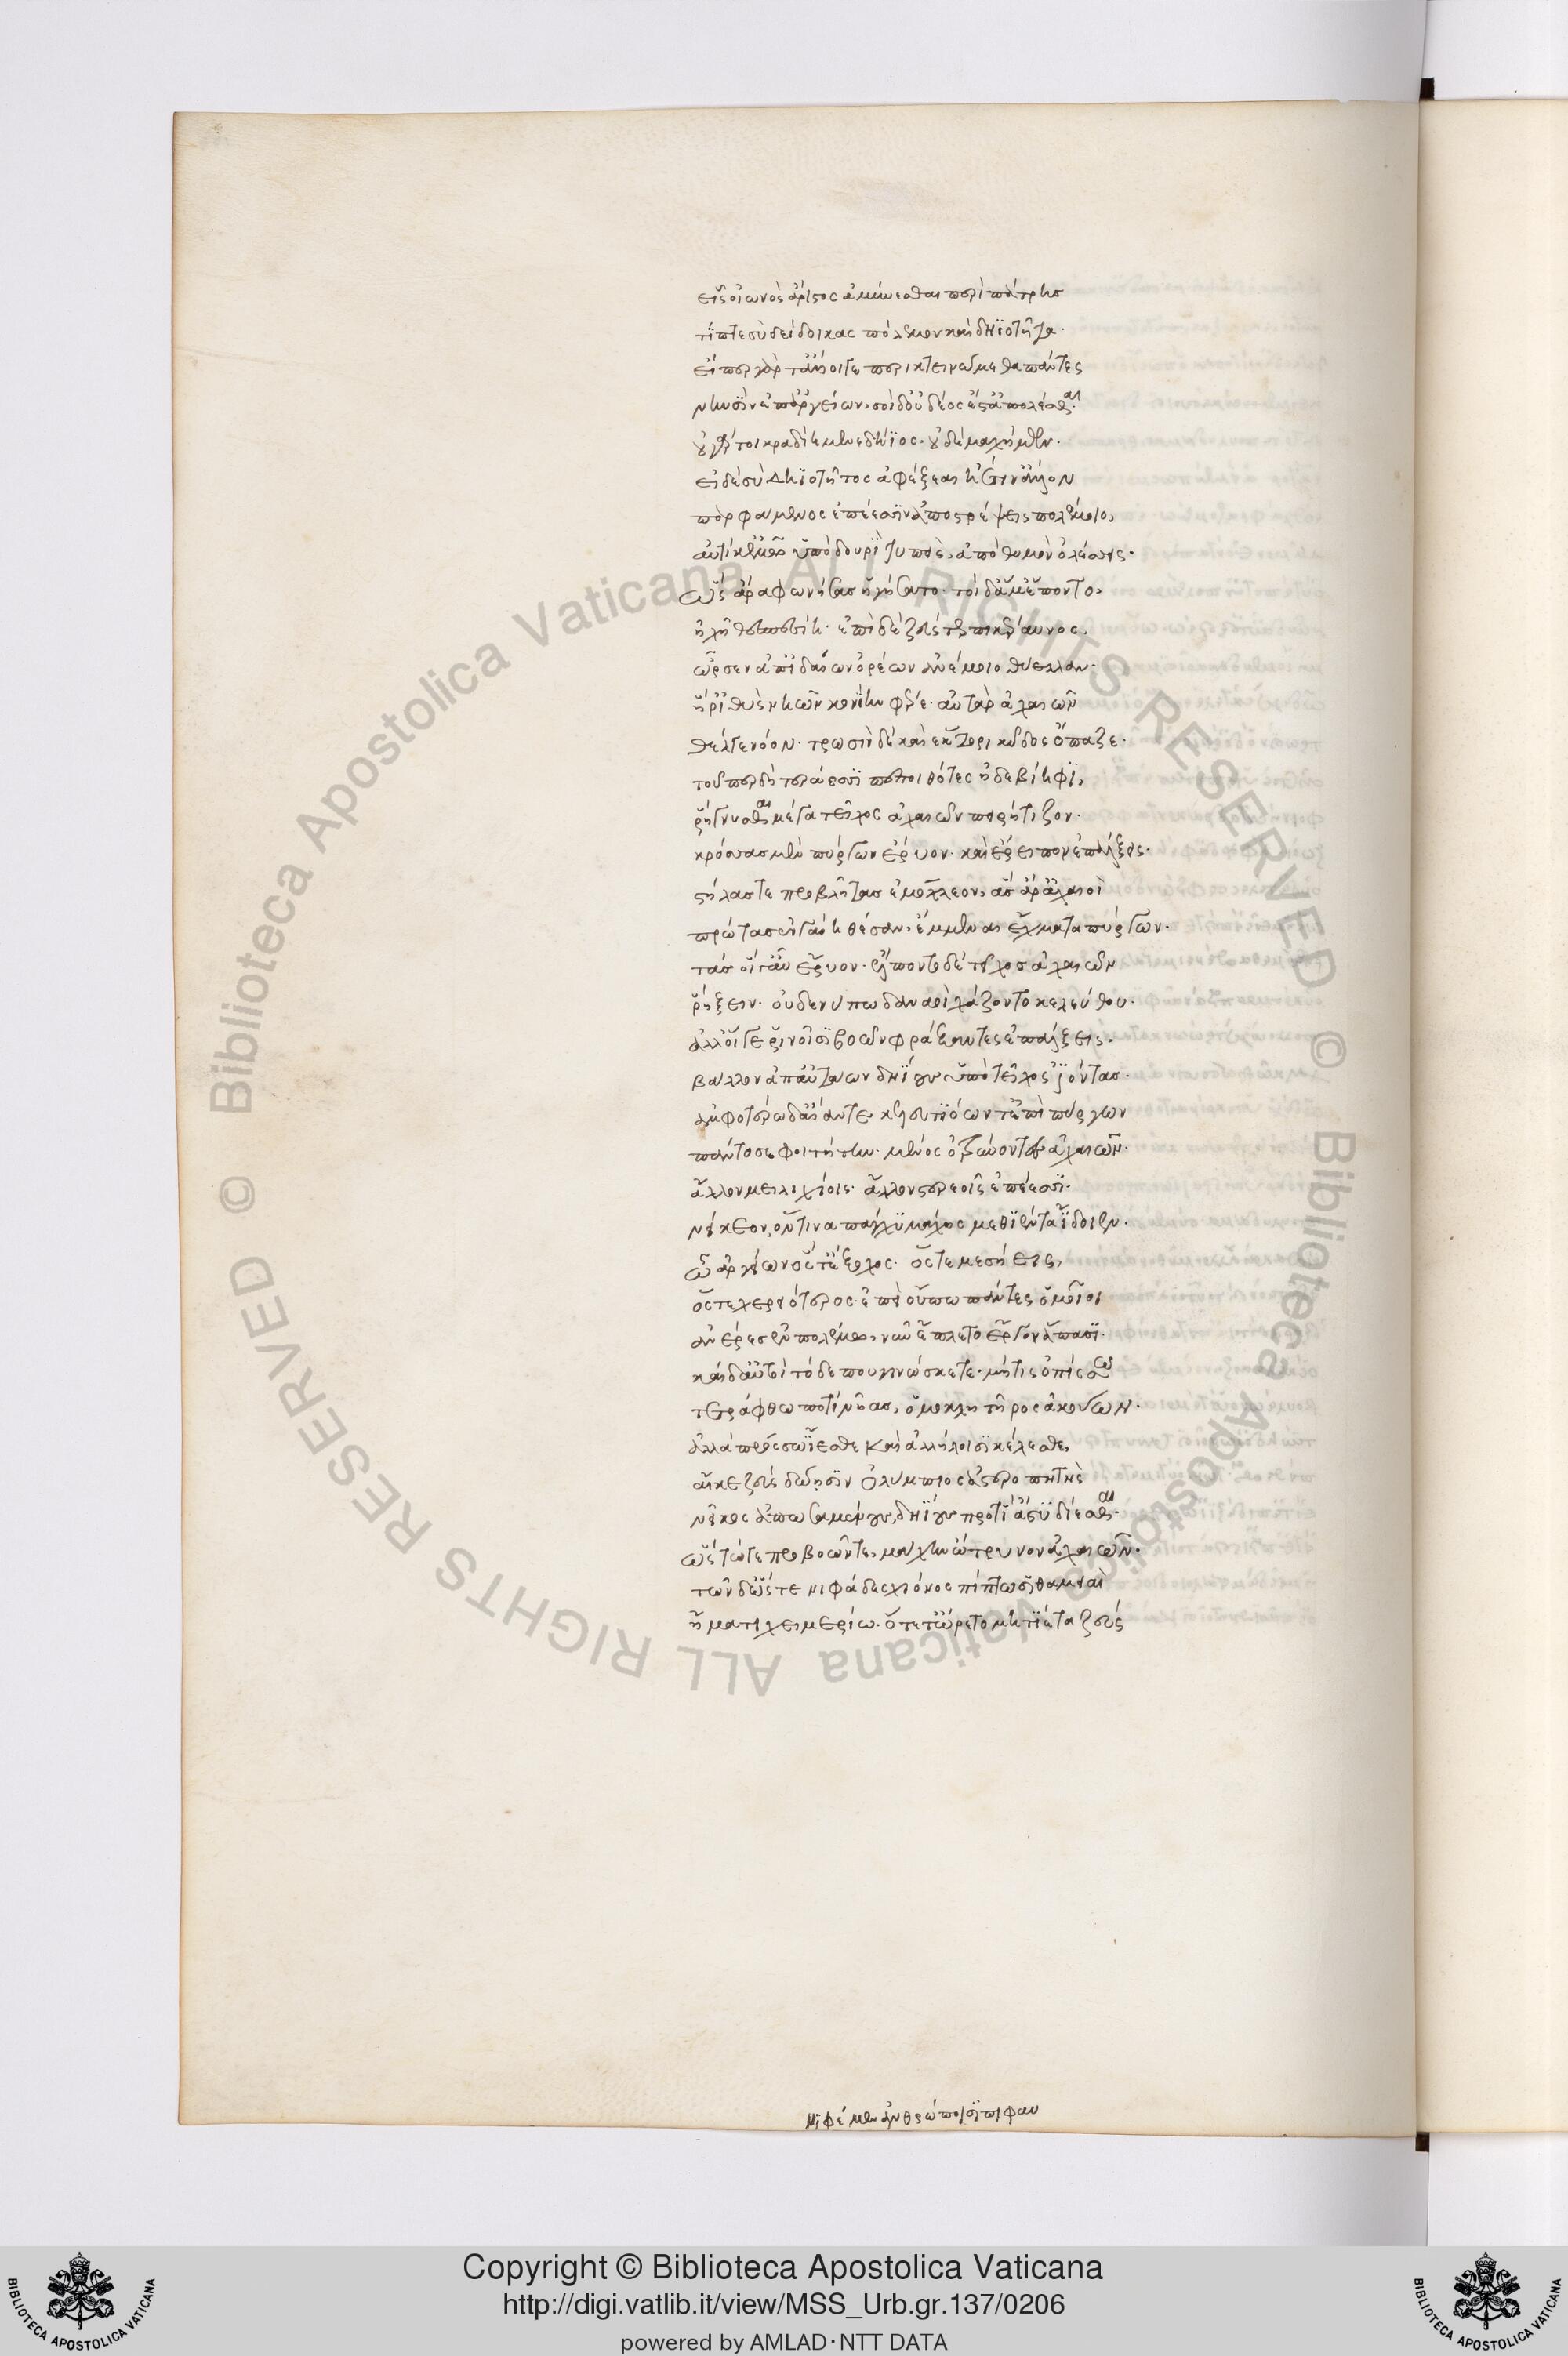 εἷς οἰωνὸς ἄριστος ἀμύνεσθαι περὶ πάτρης
τίπτε σὺ δείδοικας πόλεμον καὶ δηϊοτῆτα·
εἴπερ γάρ τ' ἄλλοι γε περικτεινώμεθα πάντες
νηυσὶν ἐπ' ἀργείων, σοὶ δ' οὐ δέος ἔστ' ἀπολέσθαι·
οὐ γάρ τοι κραδίη μενεδήϊος· οὐδὲ μαχήμων·
εἰ δὲ σὺ δηϊοτῆτος ἀφέξεαι ἠέ τιν' ἄλλον
παρφάμενος ἐπέεσσιν ἀποστρέψεις πολέμοιο,
αὐτίκ' ἐμῶ ὑπὸ δουρὶ τυπεὶς ἀπὸ θυμὸν ὀλέσσεις·
ὣς ἄρα φωνήσας ἡγήσατο· τοὶ δ' ἅμ' ἕποντο,
ἠχῆ θεσπεσίη· ἐπὶ δὲ ζεὺς τερπικέραυνος,
ὦρσεν ἀπ' ἰδαίων ὀρέων ἀνέμοιο θύελλαν·
ἥ ῥ' ἰθὺς νηῶν κονίην φέρε· αὐτὰρ ἀχαιῶν
θέλγε νόον· τρωσὶν δὲ καὶ ἕκτορι κῦδος ὄπαζε·
τοῦ περ δὴ τεράεσσι πεποιθότες ἠδὲ βίηφι,
ῥήγνυσθαι μέγα τεῖχος ἀχαιῶν πειρήτιζον·
κρόσσας μὲν πύργων ἔρυον· καὶ ἔρειπον ἐπάλξεις·
στήλας τε προβλῆτας ἐμόχλεον, ἃς ἄρ' ἀχαιοὶ
πρώτας ἐν γαίη θέσαν, ἔμμεναι ἔχματα πύργων·
τὰς οἵ γ' αὖ ἔρυον· ἔλποντο δὲ τεῖχος ἀχαιῶν
ῥήξειν· οὐδέ νύ πω δαναοὶ χάζοντο κελεύθου·
ἀλλ' οἵ γε ῥινοῖσι βοῶν φράξαντες ἐπάλξεις·
βάλλον ἀπ' αὐτάων δηίους ὑπὸ τεῖχος ἰόντας·
ἀμφοτέρω δ' αἴαντε κελευτιόων τ' ἐπὶ πύργων
πάντοσε φοιτήτην· μένος ὀτρύνοντες ἀχαιῶν·
ἄλλον μειλιχίοις· ἄλλον στερεοῖς ἐπέεσσι·
νείκεον, ὅντινα πάγχυ μάχης μεθιέντα ἴδοιεν·
ὦ φίλοι ἀργείων ὅς τ' ἔξοχος· ὅς τε μεσήεις,
ὅς τε χερειότερος· ἐπεὶ οὔπω πάντες ὁμοῖοι
ἀνέρες ἐν πολέμω, νῦν ἔπλετο ἔργον ἅπασι·
καὶ δ' αὐτοὶ τόδε που γινώσκετε· μή τις ὀπίσσω
τετράφθω ποτὶ νῆας, ὁμοκλητῆρος ἀκούων·
ἀλλὰ πρόσσω ἵεσθε καὶ ἀλλήλοισι κέλεσθε,
αἴ κε ζεὺς δώησιν ὀλύμπιος ἀστεροπητὴς
νεῖκος ἀπωσαμένους, δηίους προτὶ ἄστυ δίεσθαι·
ὣς τώ γε προβοῶντε, μάχην ὤτρυνον ἀχαιῶν·
τῶν δ' ὥς τε νιφάδες χιόνος πίπτωσι θαμειαὶ
ἤματι χειμερίω· ὅτε τ' ὤρετο μητίετα ζεύς
νιφέμεν ἀνθρώποισι πιφαυ
Copyright © Biblioteca Apostolica Vaticana
http://digi.vatlib.it/view/MSS_Urb.gr.137/0206
powered by AMLAD·NTT DATA